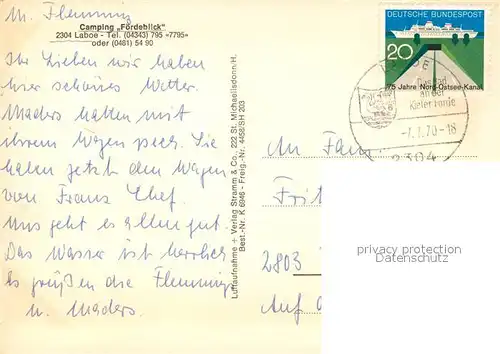 M. Flemming
Camping „Fördeblick"
2304 Laboe - Tel. (04343) 795 »7795«
oder (0481) 54 90
Ihr Lieben wir haben
hier schönes Wetter.
Maders hatten mit
ihrem Wagen pech. Sie
haben jetzt den Wagen
von Frans Chef.
Uns geht es allen gut.
Das Wasser ist herrlich
Es grüßen die Flemmings
u. Maders.
Luftaufnahme + Verlag Stramm & Co., 222 St. Michaelisdonn/H.
Best.-Nr. K 6946 - Freig.-Nr. 4458/SH 203
DEUTSCHE BUNDESPOST
20
75 Jahre Nord-Ostsee-Kanal
Das Bad
an der
Kieler Förde
-7.7.70-18
2304
An Fam.
Frit
2803
Auf
privacy protection
Datenschutz